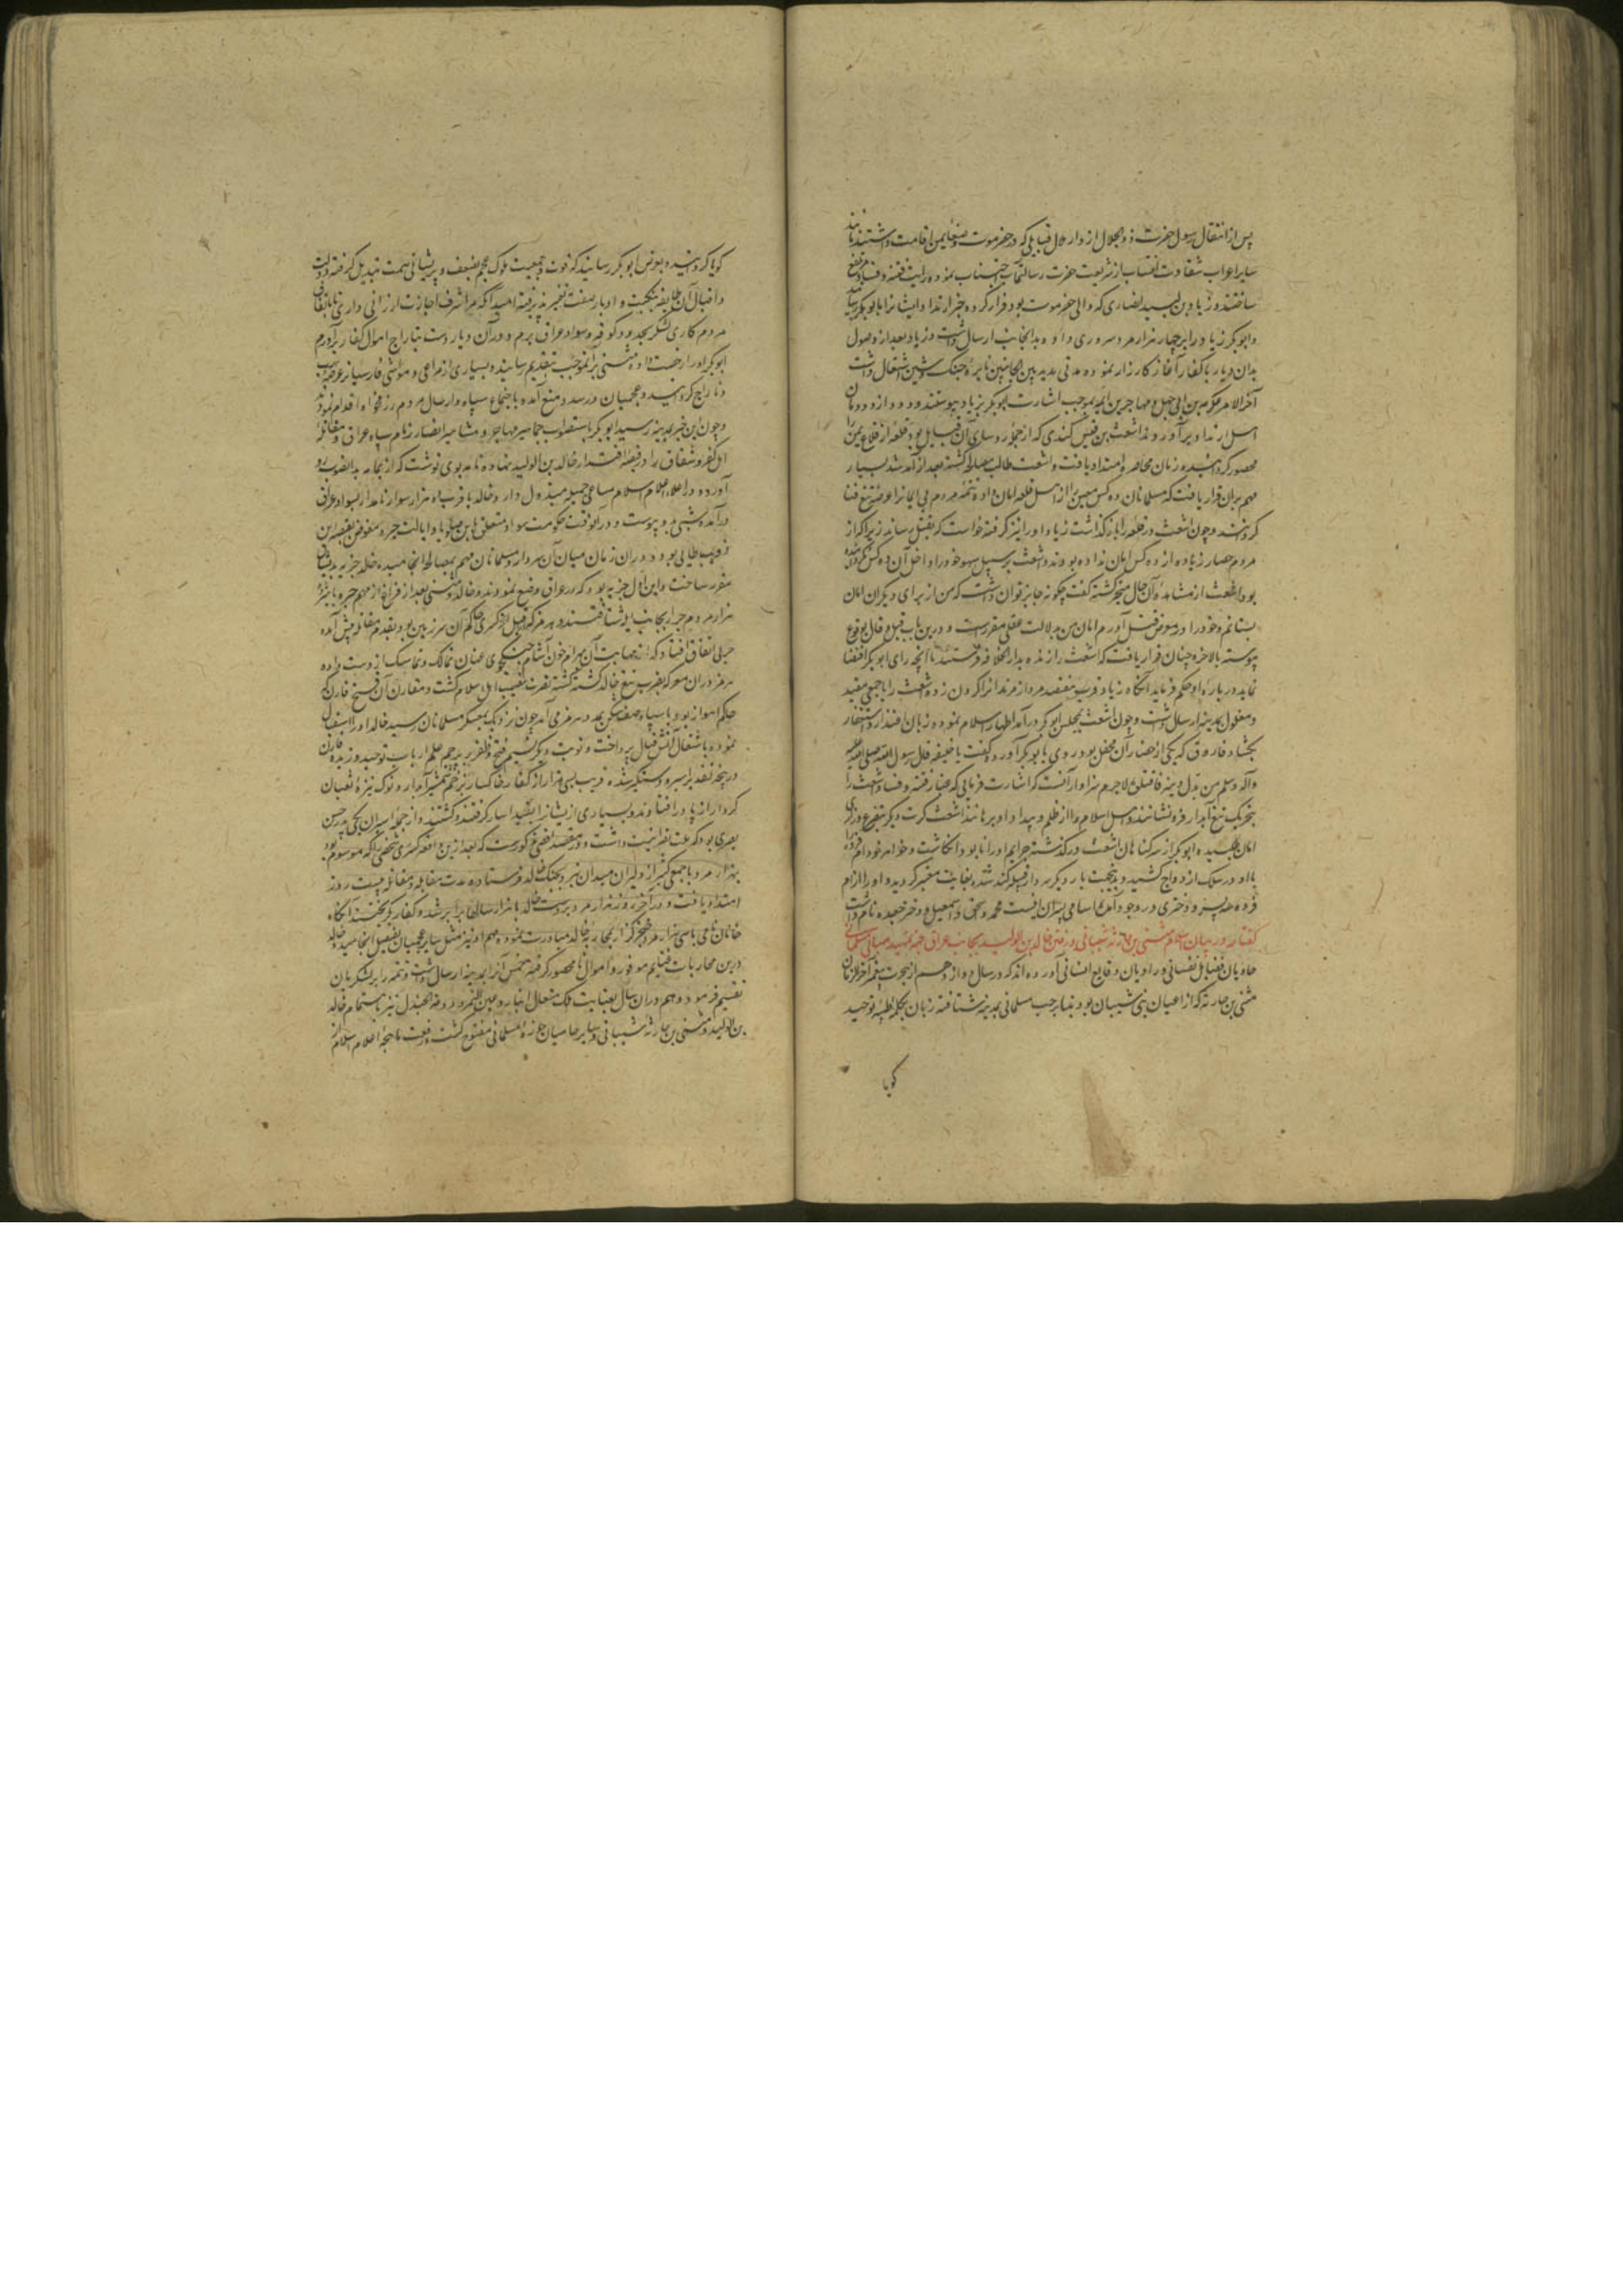 پس از انتقال رسول حضرت ذو الجلال از دار ملال قبایلی که در حضرموت و صنعا یمن اقامت داشتند مانند
سایر اعراب شقاوت انتساب از شریعت حضرت رسالتمآب اجتناب نموده رایت فتنه و فساد مرتفع
ساختند و زیاد بن لبید انصاری که والی حضرموت بود فرار کرده خبر ارتداد ایشانرا بابوبکر رسانید
و ابوبکر زیاد را بر چهار هزار مرد سروری داده بدانجانب ارسال داشت و زیاد بعد از وصول
بدان دیار با کفار آغاز کارزار نموده مدتی مدید بین الجانبین نایره جنگ و شین اشتعال داشت
آخر الامر عکرمه بن ابی جهل و مهاجر بن امیه بموجب اشارت ابوبکر بزیاد پیوستند و دود از دودمان
اهل ارتداد برآوردند اشعث بن قیس کندی که از جمله رؤسای آن قبایل بود در قلعه از قلاع یمن
محصور گردانیده زمان محاصره امتداد یافت و اشعث طالب مصالحه گشته بعد از آمد شد بسیار
مهم بران قرار یافت که مسلمانان ده کس معین را از اهل قلعه امان داده تتمه مردم بی ایمانرا عرضه تیغ فنا
گردانند و چون اشعث در قلعه را باز گذاشت زیاد او را نیز گرفته خواست که بقتل رساند زیرا که از
مردم حصار زیاده از ده کس امان نداده بودند و اشعث بر سبیل سهو خود را داخل آن ده کس نگردانیده
بود اشعث از مشاهده آن حال متحیر گشته گفت چگونه جایز توان داشت که من از برای دیگران امان
بستانم و خود را در معرض قتل آورم امان من بدلالت عقلی مقررست و درین باب قیل و قال بوقوع
پیوسته بالاخره چنان قرار یافت که اشعث را زنده بدار الخلافه فرستند تا آنچه رای ابوبکر اقتضا
نماید درباره او حکم فرماید آنگاه زیاد قریب هفتصد مرد از مرتدانرا گردن زده اشعث را با جمعی مقید
و مغلول بمدینه ارسال داشت و چون اشعث بمجلس ابوبکر درآمد اظهار اسلام نموده زبان اعتذار و استغفار
بگشاد فاروق که یکی از حضار آن محفل بود روی بابوبکر آورده گفت یا خلیفه قال رسول الله صلی الله علیه
وآله وسلم من بدل دینه فاقتلوه لاجرم سزاوار آنست که اشارت فرمائی که غبار فتنه و فساد اشعث را
بتحریک تیغ آبدار فرو نشانند و اهل اسلام را از ظلم و بیداد او برهانند اشعث کرت دیگر بتضرع و زاری
امان طلبیده ابوبکر از سر گناهان اشعث درگذشته جرایم او را نابود انگاشت و خواهر خود ام فروه
با او در سلک ازدواج کشید و بدینجهت بار دیگر سردار قبیله کنده شده بغایت معتبر گردید و او را از ام
فروه سه پسر و دختری در وجود آمد اسامی پسران اینست محمد و اسحق و اسمعیل و دختر جعده نام داشت
گفتار در بیان اسلام مثنی بن حارثه شیبانی و رفتن خالد بن الولید بجانب عراق جهة تمهید مبانی مسلمانی
حاویان فضایل نفسانی و راویان وقایع انسانی آورده اند که در سال دوازدهم از هجرت پیغمبر آخر الزمان
مثنی بن حارثه که از اعیان بنی شیبان بود بنا بر حب مسلمانی بمدینه شتافته زبان بکلمه طیبه توحید
گویا
گویا گردانید و بعرض ابوبکر رسانید که قوت و جمعیت ملوک عجم بضعف و پریشانی سمت تبدیل گرفته و دولت
و اقبال آن طایفه بنکبت و ادبار صفت تغییر پذیرفته امید آنکه مرا شرف اجازت ارزانی داری تا باتفاق
مردم کاری لشکر بحدود کوفه و سواد عراق برم و در آن دیار دست بتاراج اموال کفار برآورم
ابوبکر او را رخصت داده مثنی برانموجب بتقدیم رسانید و بسیاری از مراعی و مواشی فارسیان عرضه نهب
و تاراج گردانید و عجمیان درصدد منع آمده باجتماع سپاه و ارسال مردم رزمخواه اقدام نمودند
و چون این خبر بمدینه رسید ابوبکر باستصواب جماهیر مهاجر و مشاهیر انصار زمام سپاه عراق و مقاتله
اهل کفر و شقاق را در قبضه اقتدار خالد بن الولید نهاده نامه بوی نوشت که از یمامه بدانصوب رو
آورده در اعلاء اعلام اسلام مساعی جمیله مبذول دارد خالد با قریب ده هزار سوار نامدار بسواد عراق
درآمده مثنی بدو پیوست و درآنوقت حکومت سواد متعلق بابن صلوبا و ایالت حیره مفوض بقبیصه بن
ذویب طائی بود و در ان زمان میان آن سردار و مسلمانان مهم بمصالحه انجامیده خالد جزیه بدیشان
مقرر ساخت و این اول جزیه بود که در عراق وضع نمودند و خالد و مثنی بعد از فراغ از مهم حیره با هژده
هزار مرد جرار بجانب ابله شتافتند و هرمز که از قبل کسری حاکم آن سرزمین بود بقدم مقاتله پیش آمده
حربی اتفاق افتاد که از مهابت آن بهرام خون آشام جنگجوی عنان تمالک و تماسک از دست داده
هرمز دران معرکه بضرب تیغ خالد کشته گشته نصرت نصیب اهل اسلام گشت و مقارن آن فتح قارن که
حاکم اهواز بود با سپاه صف شکن بمدد هرمز می آمد چون نزدیک بمعسکر مسلمانان رسید خالد او را استقبال
نموده باشتعال آتش قتال پرداخت و نوبت دیگر نسیم فتح و ظفر بر پرچم علم ارباب توحید وزیده قارن
در پنجه تقدیر اسیر و دستگیر شده قریب سی هزار از کفار خاکسار بزخم شمشیر آبدار و نوک نیزه ثعبان
کردار از پا درافتادند و بسیاری از ایشانرا بقید اسار گرفتند و کشتند و از جمله اسیران یکی پدر حسن
بصری بود که ملت نصرانیت داشت و در مقصد اقصی مذکورست که بعد ازین واقعه کسری شخصی را که موسوم بود
بهزار مرد با جمعی کثیر از دلیران میدان نبرد بجنگ خالد فرستاده مدت مقابله و مقاتله بیست روز
امتداد یافت و در آخر روز هزار مرد بر دست خالد با هزار ساله برابر شد و کفار بگریختند آنگاه
خانان نامی با سی هزار مرد خنجرگذار بمحاربه خالد مبادرت نموده مهم او نیز مثل سایر عجمیان بفیصل انجامید و خالد
درین محاربات غنایم موفور و اموال نامحصور گرفته خمس آنرا بمدینه ارسال داشت و تتمه را بر لشکریان
تقسیم فرمود و هم دران سال بعنایت ملک متعال انبار و عین التمر و دومة الجندل نیز باهتمام خالد
بن الولید و مثنی بن حارثه شیبانی و سایر حامیان حوزه مسلمانی مفتوح گشت و رفعت ماهچه اعلام اسلام از